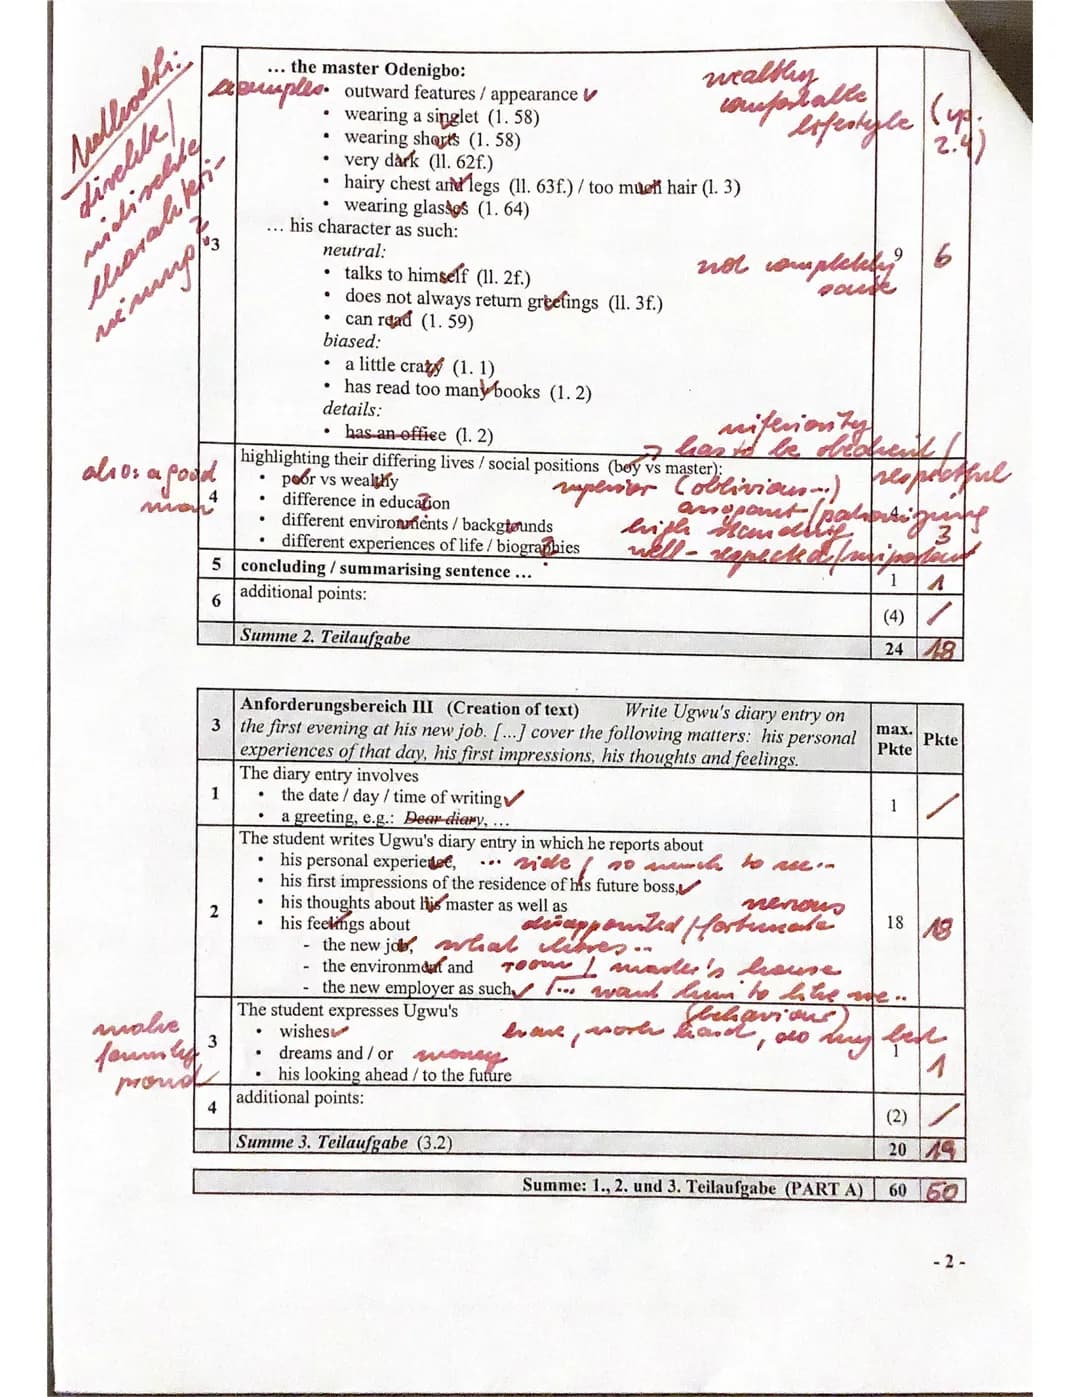 ... the master Odenigbo:
wealthy
comfortable
lifestyle
examples
• outward features / appearance
• wearing a singlet (l. 58)
• wearing shorts (l. 58)
• very dark (ll. 62f.)
• hairy chest and legs (ll. 63f.) / too much hair (l. 3)
• wearing glasses (l. 64)
direkte/
indirekte
3
... his character as such:
neutral:
• talks to himself (ll. 2f.)
not completely
9
6
• does not always return greetings (ll. 3f.)
• can read (l. 59)
biased:
• a little crazy (l. 1)
• has read too many books (l. 2)
details:
• has an office (l. 2)
inferiority
→ has to be obedient /
respectful
also: a good
man
4
highlighting their differing lives / social positions (boy vs master):
• poor vs wealthy
superior (oblivious...)
• difference in education
arrogant / patronizing
4
• different environments / backgrounds
high standing
3
• different experiences of life / biographies
well-respected / important
5 concluding / summarising sentence ...
1
1
6 additional points:
(4)
/
Summe 2. Teilaufgabe
24
18
3
Anforderungsbereich III (Creation of text) Write Ugwu's diary entry on
the first evening at his new job. [...] cover the following matters: his personal
experiences of that day, his first impressions, his thoughts and feelings.
max.
Pkte
Pkte
1
The diary entry involves
• the date / day / time of writing
• a greeting, e.g.: Dear diary, ...
1
/
2
The student writes Ugwu's diary entry in which he reports about
• his personal experience, ... ride / so much to see...
• his first impressions of the residence of his future boss,
• his thoughts about his master as well as
nervous
• his feelings about
disappointed / fortunate
18
18
- the new job, what chores...
- the environment and room / master's house
- the new employer as such, ... want him to like me..
(behaviour)
make
family
proud
3
The student expresses Ugwu's
• wishes
have, work hard, do my best
• dreams and / or money
• his looking ahead / to the future
1
1
4 additional points:
(2)
/
Summe 3. Teilaufgabe (3.2)
20
19
Summe: 1., 2. und 3. Teilaufgabe (PART A)
60
50
- 2 -